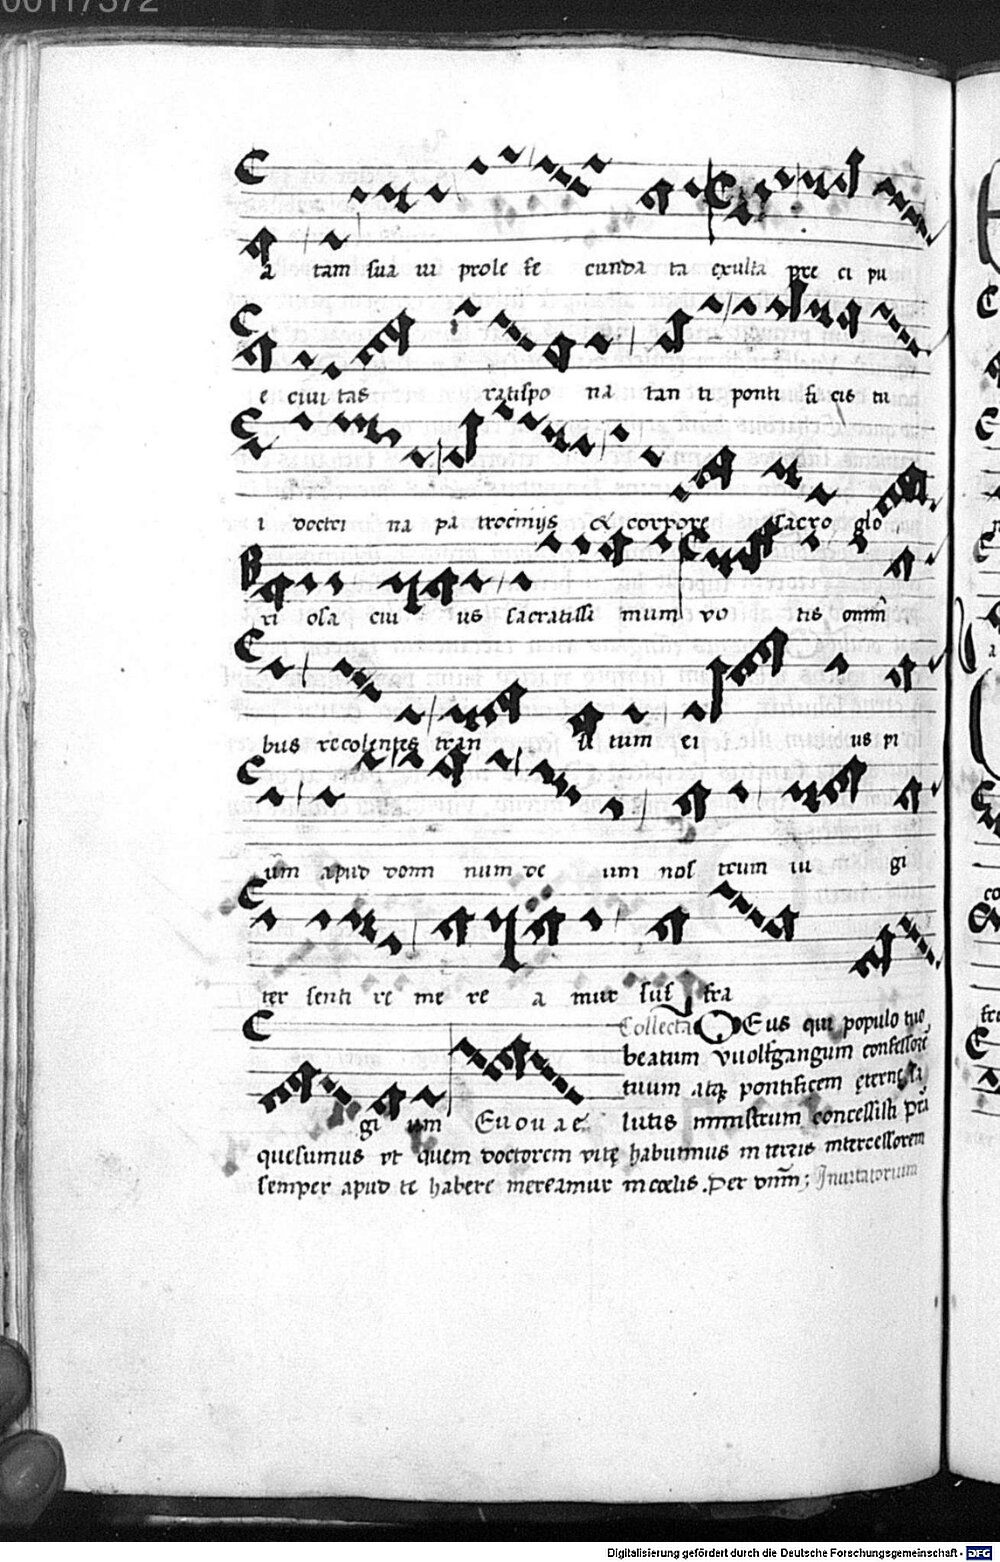 00117372
a tam sua ui prole fe cunda ta exulta pre ci pu
e ciui tas ratispo na tan ti ponti fi cis tu
i doctri na pa trocinijs & corpore sacro glo
ri osa cui us sacratissi mum uo tis omni
bus recolentes tran si tum ei us pi
um apud domi num de um nos trum iu gi
ter senti re me re a mur suf fra
gi um Euouae
Collecta DEus qui populo tuo
beatum vuolfgangum confessorē
tuum atq pontificem ęternę sa
lutis ministrum concessisti
quesumus vt quem doctorem vitę habuimus in terris intercessorem
semper apud te habere mereamur in cœlis. Per dnm; Inuitatorium
Digitalisierung gefördert durch die Deutsche Forschungsgemeinschaft - DFG